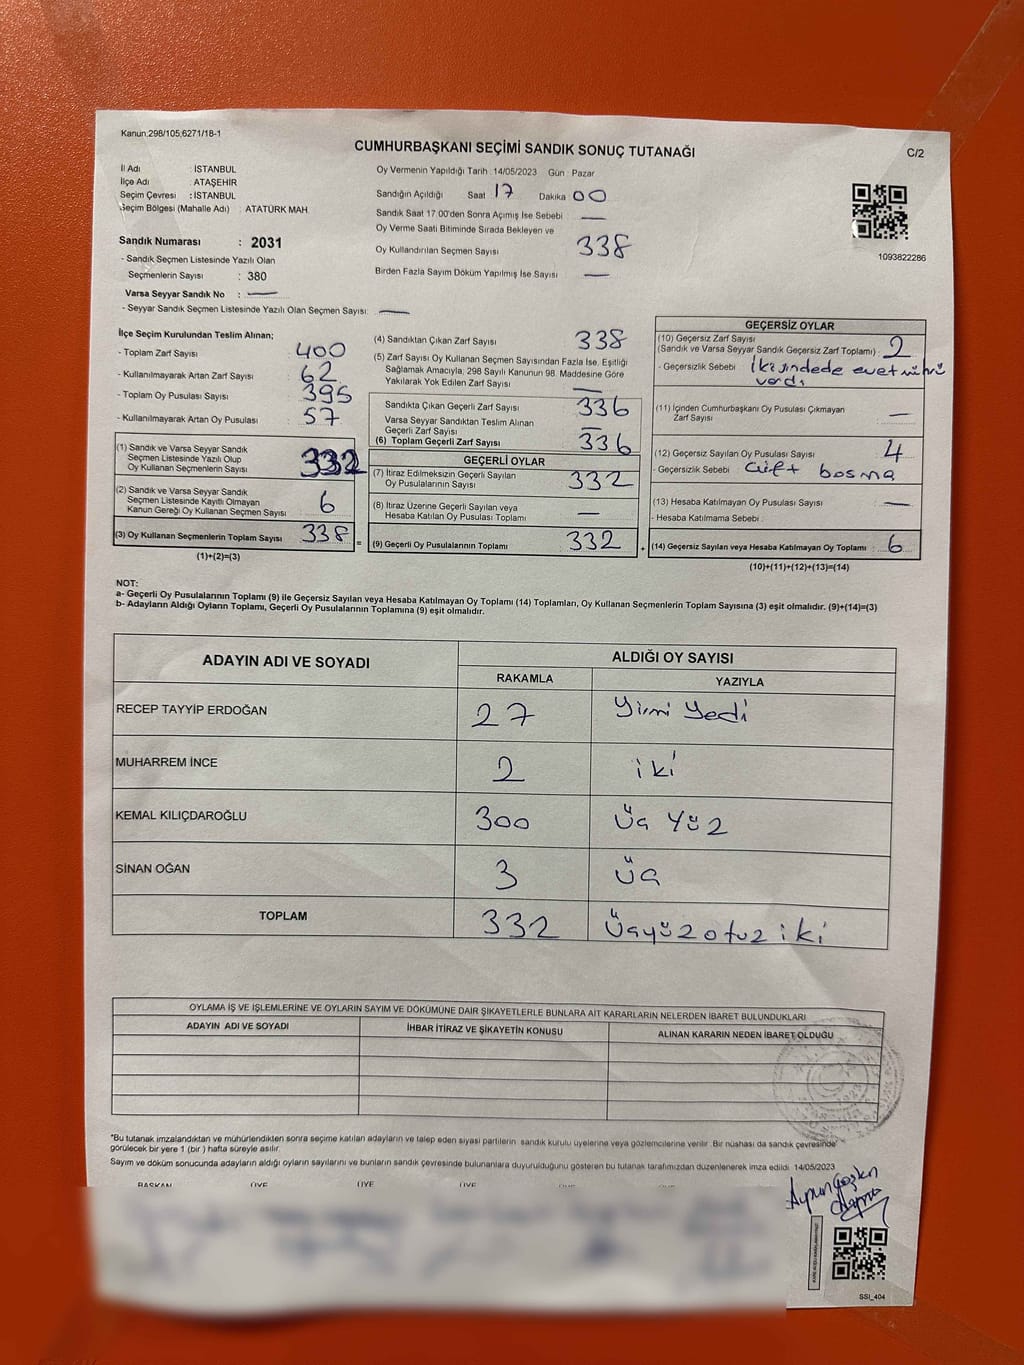 Kanun;298/105,6271/18-1
CUMHURBAŞKANI SEÇİMİ SANDIK SONUÇ TUTANAĞI
C/2
İl Adı : İSTANBUL
İlçe Adı : ATAŞEHİR
Seçim Çevresi : İSTANBUL
Seçim Bölgesi (Mahalle Adı) : ATATÜRK MAH.
Sandık Numarası : 2031
- Sandık Seçmen Listesinde Yazılı Olan
Seçmenlerin Sayısı : 380
Varsa Seyyar Sandık No : —
- Seyyar Sandık Seçmen Listesinde Yazılı Olan Seçmen Sayısı: —
Oy Vermenin Yapıldığı Tarih : 14/05/2023 Gün : Pazar
Sandığın Açıldığı Saat 17 Dakika 00
Sandık Saat 17.00'den Sonra Açımış İse Sebebi —
Oy Verme Saati Bitiminde Sırada Bekleyen ve
Oy Kullandırılan Seçmen Sayısı 338
Birden Fazla Sayım Döküm Yapılmış İse Sayısı —
1093822286
İlçe Seçim Kurulundan Teslim Alınan;
- Toplam Zarf Sayısı : 400
- Kullanılmayarak Artan Zarf Sayısı : 62
- Toplam Oy Pusulası Sayısı : 395
- Kullanılmayarak Artan Oy Pusulası : 57
(1) Sandık ve Varsa Seyyar Sandık
Seçmen Listesinde Yazılı Olup
Oy Kullanan Seçmenlerin Sayısı : 332
(2) Sandık ve Varsa Seyyar Sandık
Seçmen Listesinde Kayıtlı Olmayan
Kanun Gereği Oy Kullanan Seçmen Sayısı : 6
(3) Oy Kullanan Seçmenlerin Toplam Sayısı : 338 =
(1)+(2)=(3)
(4) Sandıktan Çıkan Zarf Sayısı 338
(5) Zarf Sayısı Oy Kullanan Seçmen Sayısından Fazla İse, Eşitliği
Sağlamak Amacıyla, 298 Sayılı Kanunun 98. Maddesine Göre
Yakılarak Yok Edilen Zarf Sayısı —
Sandıkta Çıkan Geçerli Zarf Sayısı 336
Varsa Seyyar Sandıktan Teslim Alınan
Geçerli Zarf Sayısı —
(6) Toplam Geçerli Zarf Sayısı 336
GEÇERLİ OYLAR
(7) İtiraz Edilmeksizin Geçerli Sayılan
Oy Pusulalarının Sayısı 332
(8) İtiraz Üzerine Geçerli Sayılan veya
Hesaba Katılan Oy Pusulası Toplamı —
(9) Geçerli Oy Pusulalarının Toplamı 332 +
GEÇERSİZ OYLAR
(10) Geçersiz Zarf Sayısı
(Sandık ve Varsa Seyyar Sandık Geçersiz Zarf Toplamı) : 2
- Geçersizlik Sebebi : İkisindede evet mührü
vardı
(11) İçinden Cumhurbaşkanı Oy Pusulası Çıkmayan
Zarf Sayısı —
(12) Geçersiz Sayılan Oy Pusulası Sayısı : 4
- Geçersizlik Sebebi : çift basma
(13) Hesaba Katılmayan Oy Pusulası Sayısı : —
- Hesaba Katılmama Sebebi :
(14) Geçersiz Sayılan veya Hesaba Katılmayan Oy Toplamı : 6
(10)+(11)+(12)+(13)=(14)
NOT:
a- Geçerli Oy Pusulalarının Toplamı (9) ile Geçersiz Sayılan veya Hesaba Katılmayan Oy Toplamı (14) Toplamları, Oy Kullanan Seçmenlerin Toplam Sayısına (3) eşit olmalıdır. (9)+(14)=(3)
b- Adayların Aldığı Oyların Toplamı, Geçerli Oy Pusulalarının Toplamına (9) eşit olmalıdır.
ADAYIN ADI VE SOYADI ALDIĞI OY SAYISI
RAKAMLA YAZIYLA
RECEP TAYYİP ERDOĞAN 27 Yirmi Yedi
MUHARREM İNCE 2 iki
KEMAL KILIÇDAROĞLU 300 Üç Yüz
SİNAN OĞAN 3 Üç
TOPLAM 332 Üçyüz otuz iki
OYLAMA İŞ VE İŞLEMLERİNE VE OYLARIN SAYIM VE DÖKÜMÜNE DAİR ŞİKAYETLERLE BUNLARA AİT KARARLARIN NELERDEN İBARET BULUNDUKLARI
ADAYIN ADI VE SOYADI İHBAR İTİRAZ VE ŞİKAYETİN KONUSU ALINAN KARARIN NEDEN İBARET OLDUĞU
"Bu tutanak imzalandıktan ve mühürlendikten sonra seçime katılan adayların ve talep eden siyasi partilerin sandık kurulu üyelerine veya gözlemcilerine verilir. Bir nüshası da sandık çevresinde
görülecek bir yere 1 (bir ) hafta süreyle asılır.
Sayım ve döküm sonucunda adayların aldığı oyların sayılarını ve bunların sandık çevresinde bulunanlara duyurulduğunu gösteren bu tutanak tarafımızdan düzenlenerek imza edildi. 14/05/2023
BAŞKAN ÜYE ÜYE ÜYE
SSİ_404